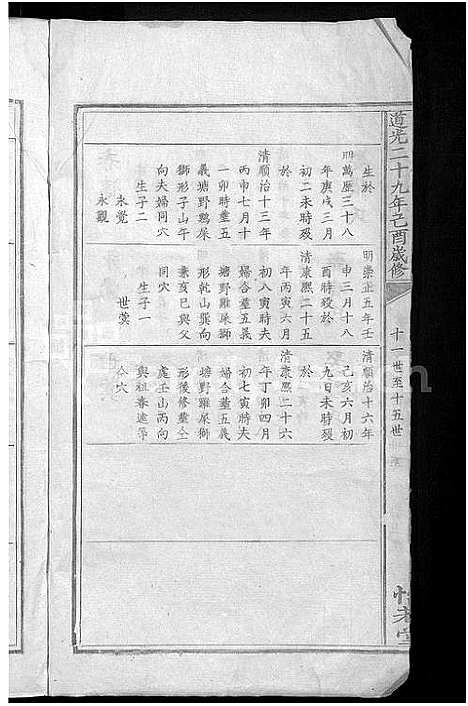 道光二十九年己酉歲修
十一世至十五世
生於
明萬歷三十八
年庚戌三月
初二未時歿
於
清順治十三年
丙申七月十
一卯時葬五
義塘野鷄屎
獅形子山午
向夫婦同穴
生子二
永覺
永觀
明崇正五年壬
申三月十八
酉時歿於
清康熙二十五
年丙寅六月
初八寅時夫
婦合葬五義
塘野雞屎獅
形乾山巽向
兼亥巳與父
同穴
生子一
世
清順治十六年
己亥六月初
九日未時歿
於
清康熙二十六
年丁卯四月
初七寅時夫
婦合葬五義
塘野雞屎獅
形後修葬仝
處壬山丙向
與祖
仝穴